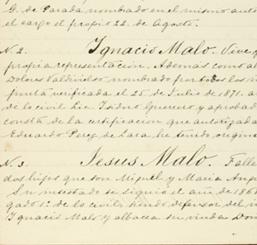 G. de Parada, nombrado en el mismo auto
el cargo el propio 22 de Agosto.
N. 2. Ignacio Malo. Vive y
propia representacion. Ademas como al
Dolores Valdivielso nombrado por todos los in
junta verificada el 25 de Julio de 1871. a
de lo civil Lic Isidro Guerrero y aprobad
consta de la certificacion que autorizada
Eduardo Perez de Lara, he tenido origina
N. 3. Jesus Malo. Falle
dos hijos que son Miguel y Maria Ang
Su intestado se siguió el año de 186
gado 1º de lo civil, siendo defensor del in
Ignacio Malo y albacea su viuda Don